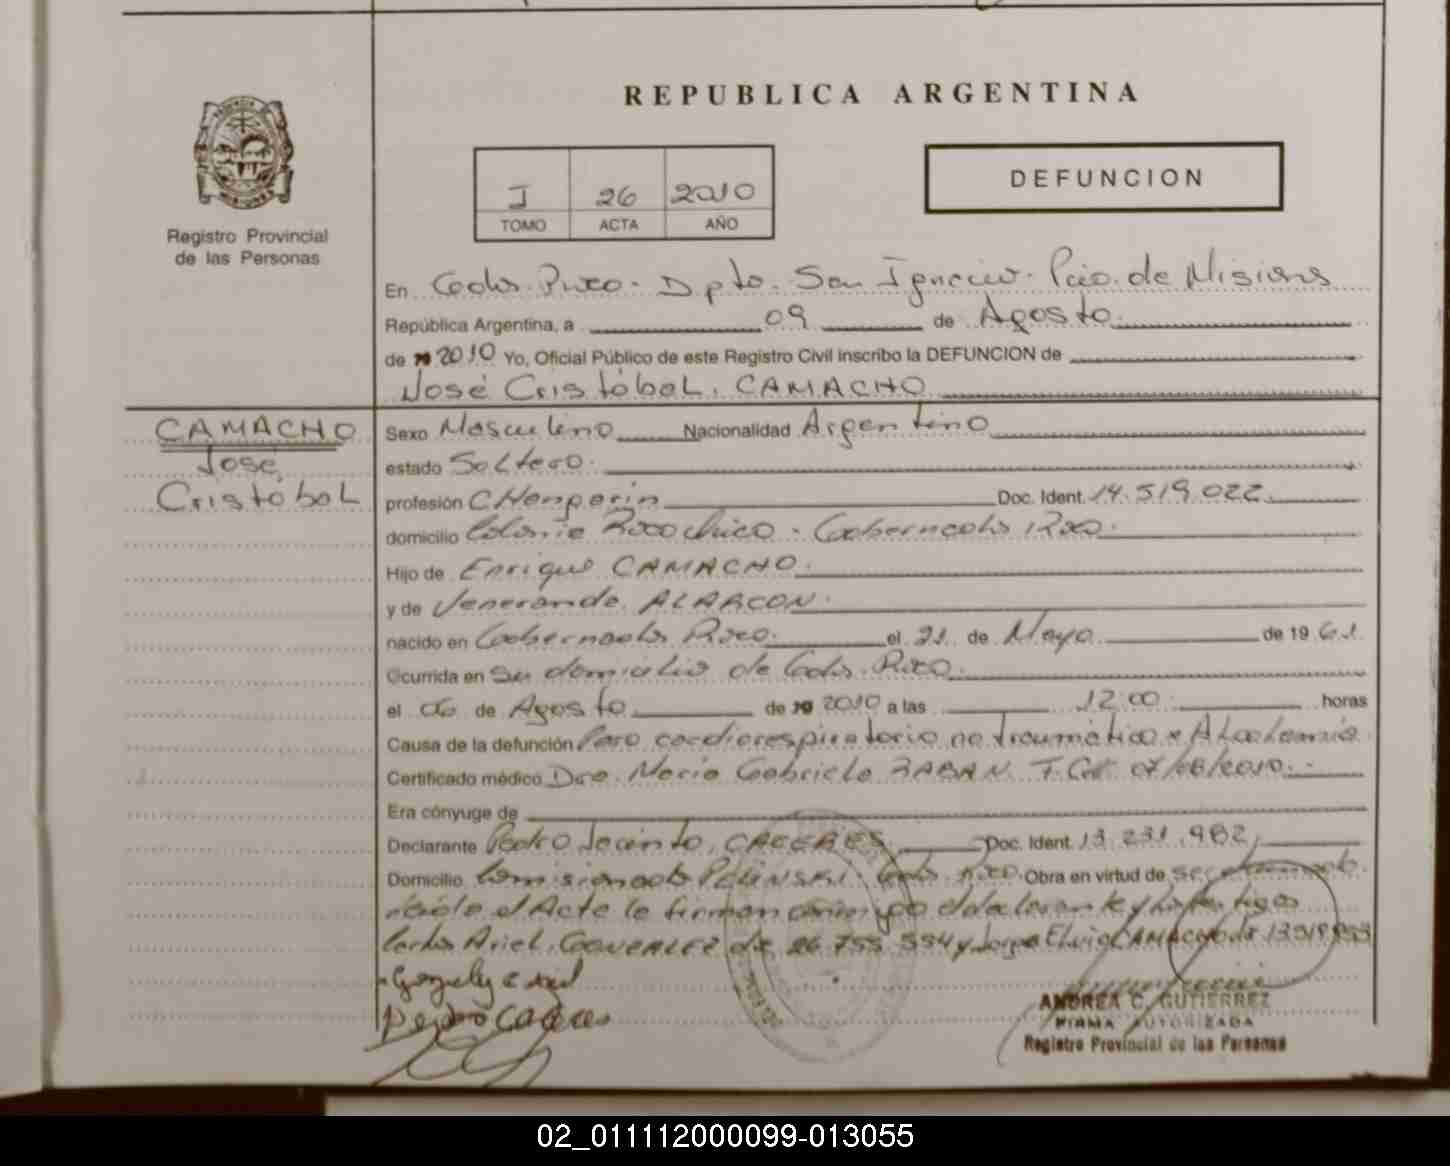 REPUBLICA ARGENTINA
Registro Provincial
de las Personas
I 26 2010
TOMO ACTA AÑO
DEFUNCION
En Gdor. Roca - Dpto. San Ignacio - Pcia. de Misiones
República Argentina, a 09 de Agosto
de 19 2010 Yo, Oficial Público de este Registro Civil inscribo la DEFUNCION de
José Cristóbal CAMACHO
CAMACHO
José
Cristóbal
Sexo Masculino Nacionalidad Argentino
estado Soltero
profesión Doc. Ident. 14.519.022
domicilio Colonia Roca Chico - Gobernador Roca
Hijo de Enrique CAMACHO
y de Veneranda ALARCON
nacido en Gobernador Roca el 21 de Mayo de 19 61
Ocurrida en Su domicilio de Gdor. Roca
el de Agosto de 19 2010 a las 12:00 horas
Causa de la defunción Paro cardiorespiratorio no traumático
Certificado médico Dra. María Gabriela T.G.
Era cónyuge de
Declarante Pedro Jacinto CACERES Doc. Ident. 13.231.982
Domicilio Comisionado Gdor. Roca Obra en virtud de
el Acta la firman conmigo el declarante y los testigos
Carlos Ariel GONZALEZ 26.755.554 y Jorge CAMACHO
Pedro Caceres
ANDREA C. GUTIERREZ
FIRMA AUTORIZADA
Registro Provincial de las Personas
02_011112000099-013055